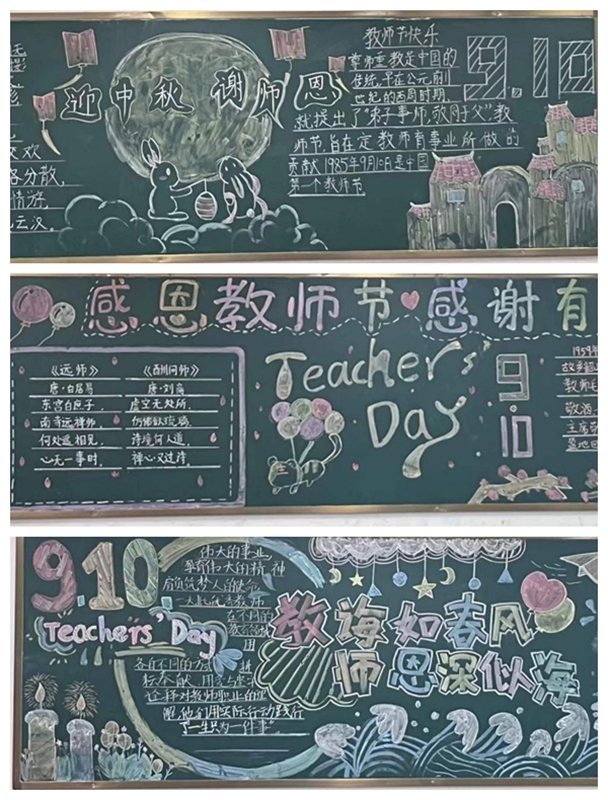 迎中秋 谢师恩
交欢
各分散,
情游,
云汉。
教师节快乐
尊师重教是中国的
传统,早在公元前
世纪的西周时期
就提出了"弟子事师,敬同于父"教
师节,旨在定教师育事业所做的
贡献1985年9月10日是中国
第一个教师节。
9.10
感恩教师节 感谢有
《远师》
唐·白居易
东宫白庶子,
南寺远禅师。
何处遥相见,
心无一事时。
《酬问师》
唐·刘商
虚空无处所,
仿佛似琉璃。
诗境何人道,
禅心又过诗。
Teacher's
Day
9.10
1959年
敬海
9.10.
Teachers' Day
伟大的事业,
孕育伟大的精神
肩负筑梦人的使命,
一大批优秀教师
在不同的
用
各自不同的方式
标奉献,用
诠释对教师职业的理
解,他们用实际行动践行
"一生只为一件事"
教诲如春风
师恩深似海